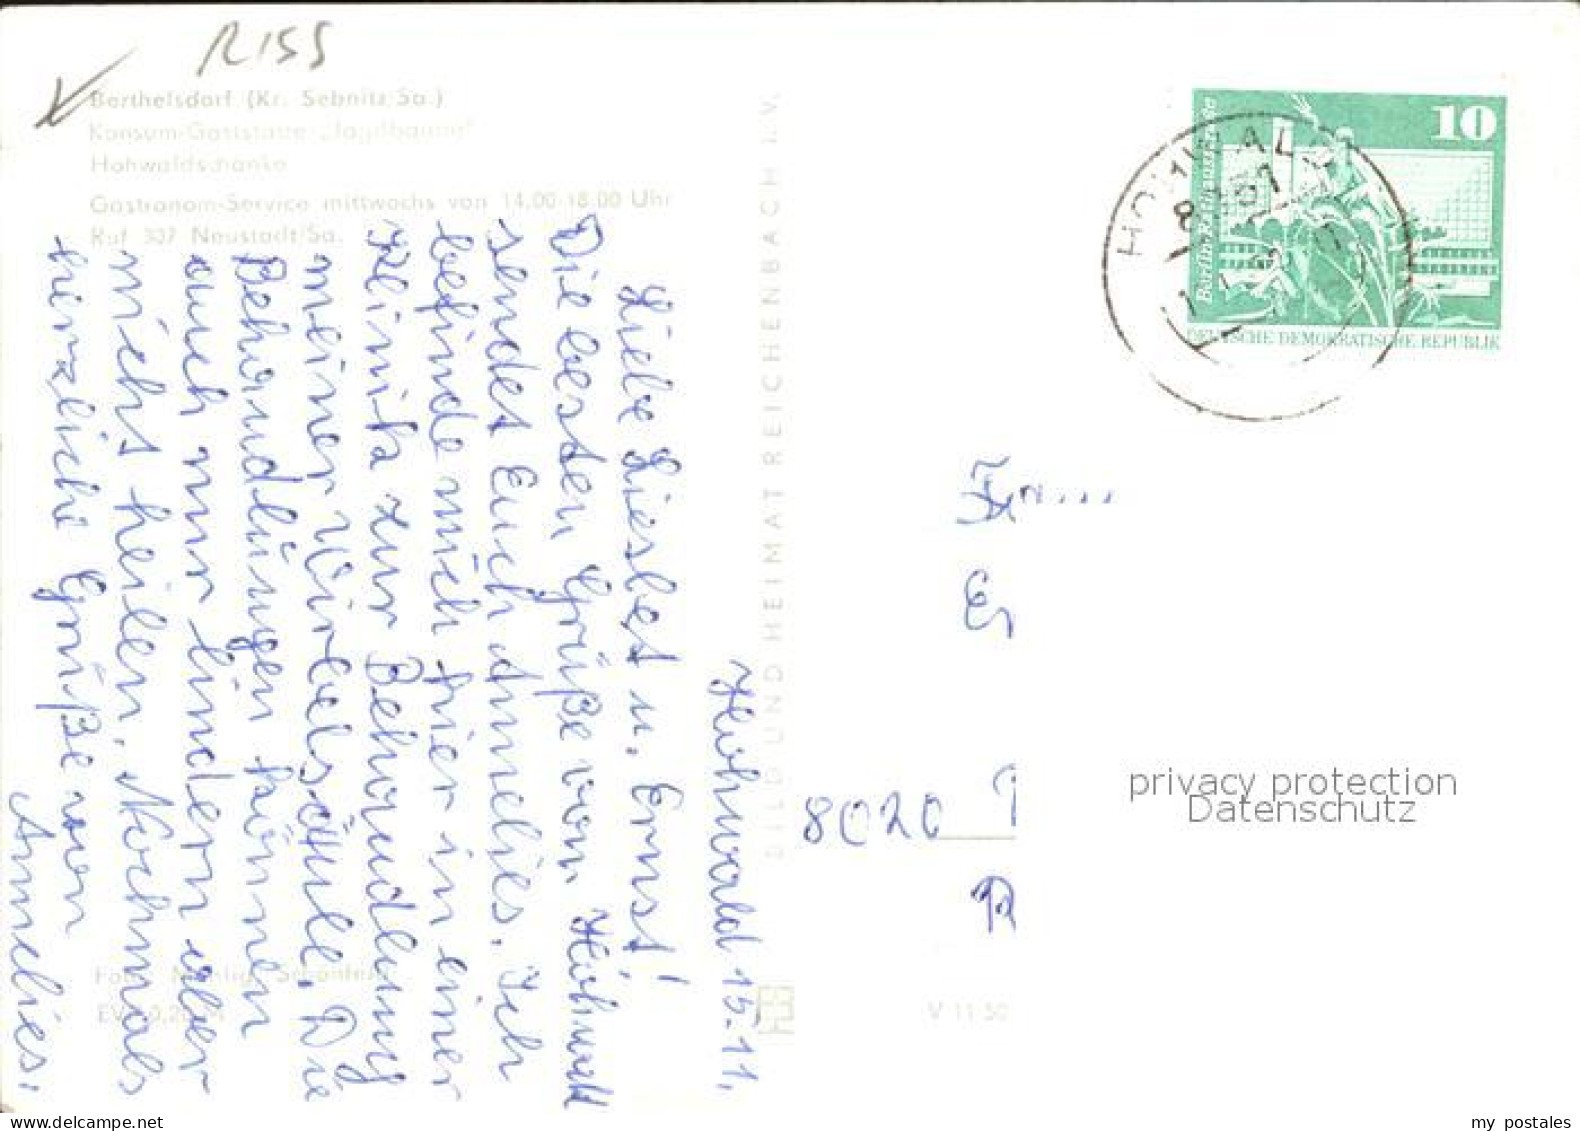 RISS
Berthelsdorf (Kr. Sebnitz/Sa.)
Konsum-Gaststätte „Jagdbaude“
Hohwaldschänke
Gastronom-Service mittwochs von 14.00-18.00 Uhr
Ruf 307 Neustadt/Sa.
Hohwald 15.11.
Liebe Liesbet u. Ernst!
Die besten Grüße vom Hohwald
sendet Euch Annelies. Ich
befinde mich hier in einer
Klinik zur Behandlung
meiner Wirbelsäule. Die
Behandlungen können
auch nur lindern aber
nicht heilen. Nochmals
herzliche Grüße von
Annelies.
BILD UND HEIMAT REICHENBACH I. V.
EVP 0,20 M
V 11 50
10
DEUTSCHE DEMOKRATISCHE REPUBLIK
HOHWALD
8351
8020
privacy protection
Datenschutz
delcampe.net
my_postales